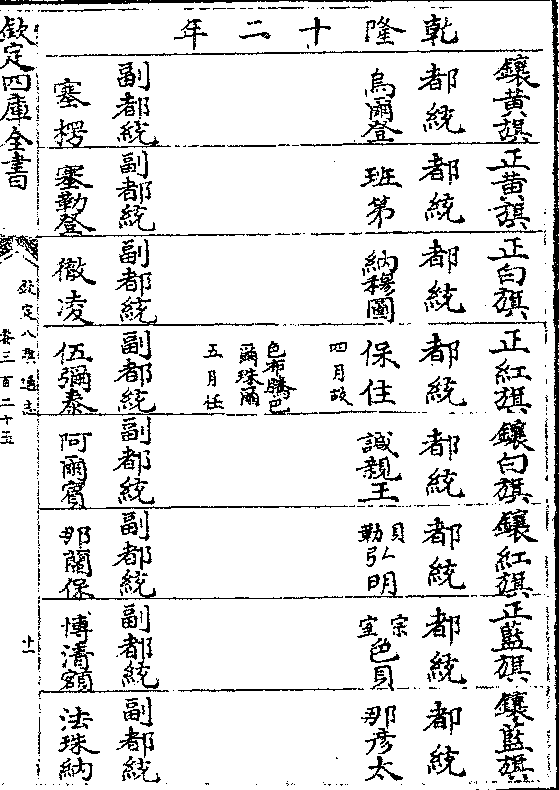 乾隆十二年
鑲黃旗 正黃旗 正白旗 正紅旗 鑲白旗 鑲紅旗 正藍旗 鑲藍旗
都統 都統 都統 都統 都統 都統 都統 都統
烏爾登 班第 納穆圖 保住 誠親王 貝勒弘明 宗室色貝 那彥太
四月改
色布騰巴
爾珠爾
五月任
副都統 副都統 副都統 副都統 副都統 副都統 副都統 副都統
塞楞 塞勒登 徹凌 伍彌泰 阿爾賓 那蘭保 博清額 法珠納
欽定四庫全書
欽定八旗通志
卷三百二十五
十一